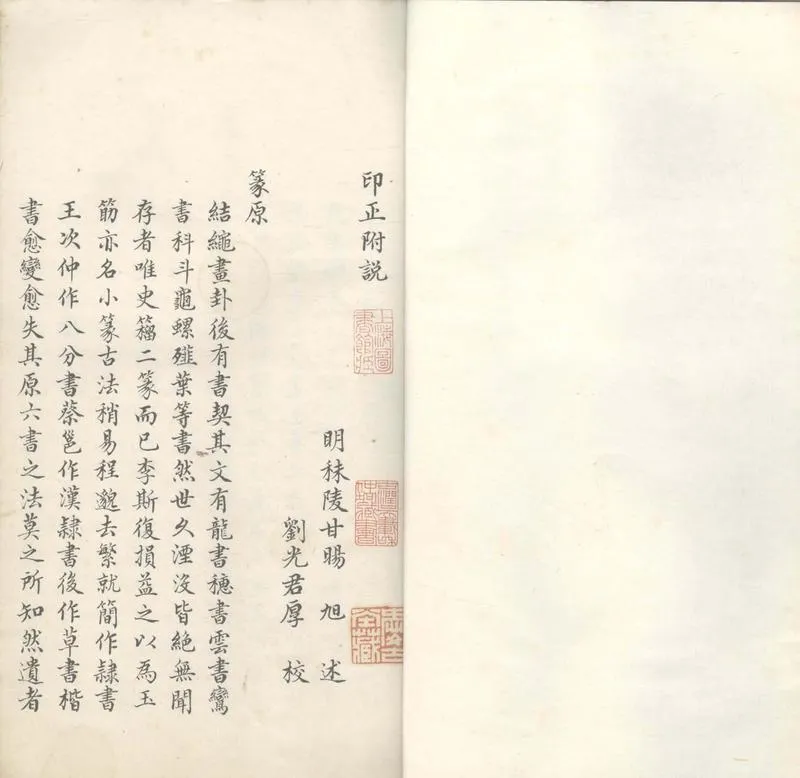 印正附説
明秣陵甘暘 旭 述
劉光君厚 校
篆原
結繩畫卦後有書契其文有龍書穗書雲書鸞
書科斗龜螺薤葉等書然世久湮没皆絶無聞
存者唯史籀二篆而已李斯復損益之以為玉
筋亦名小篆古法稍易程邈去繁就簡作隷書
王次仲作八分書蔡邕作漢隷書後作草書楷
書愈變愈失其原六書之法莫之所知然遺者
上海圖
書館藏